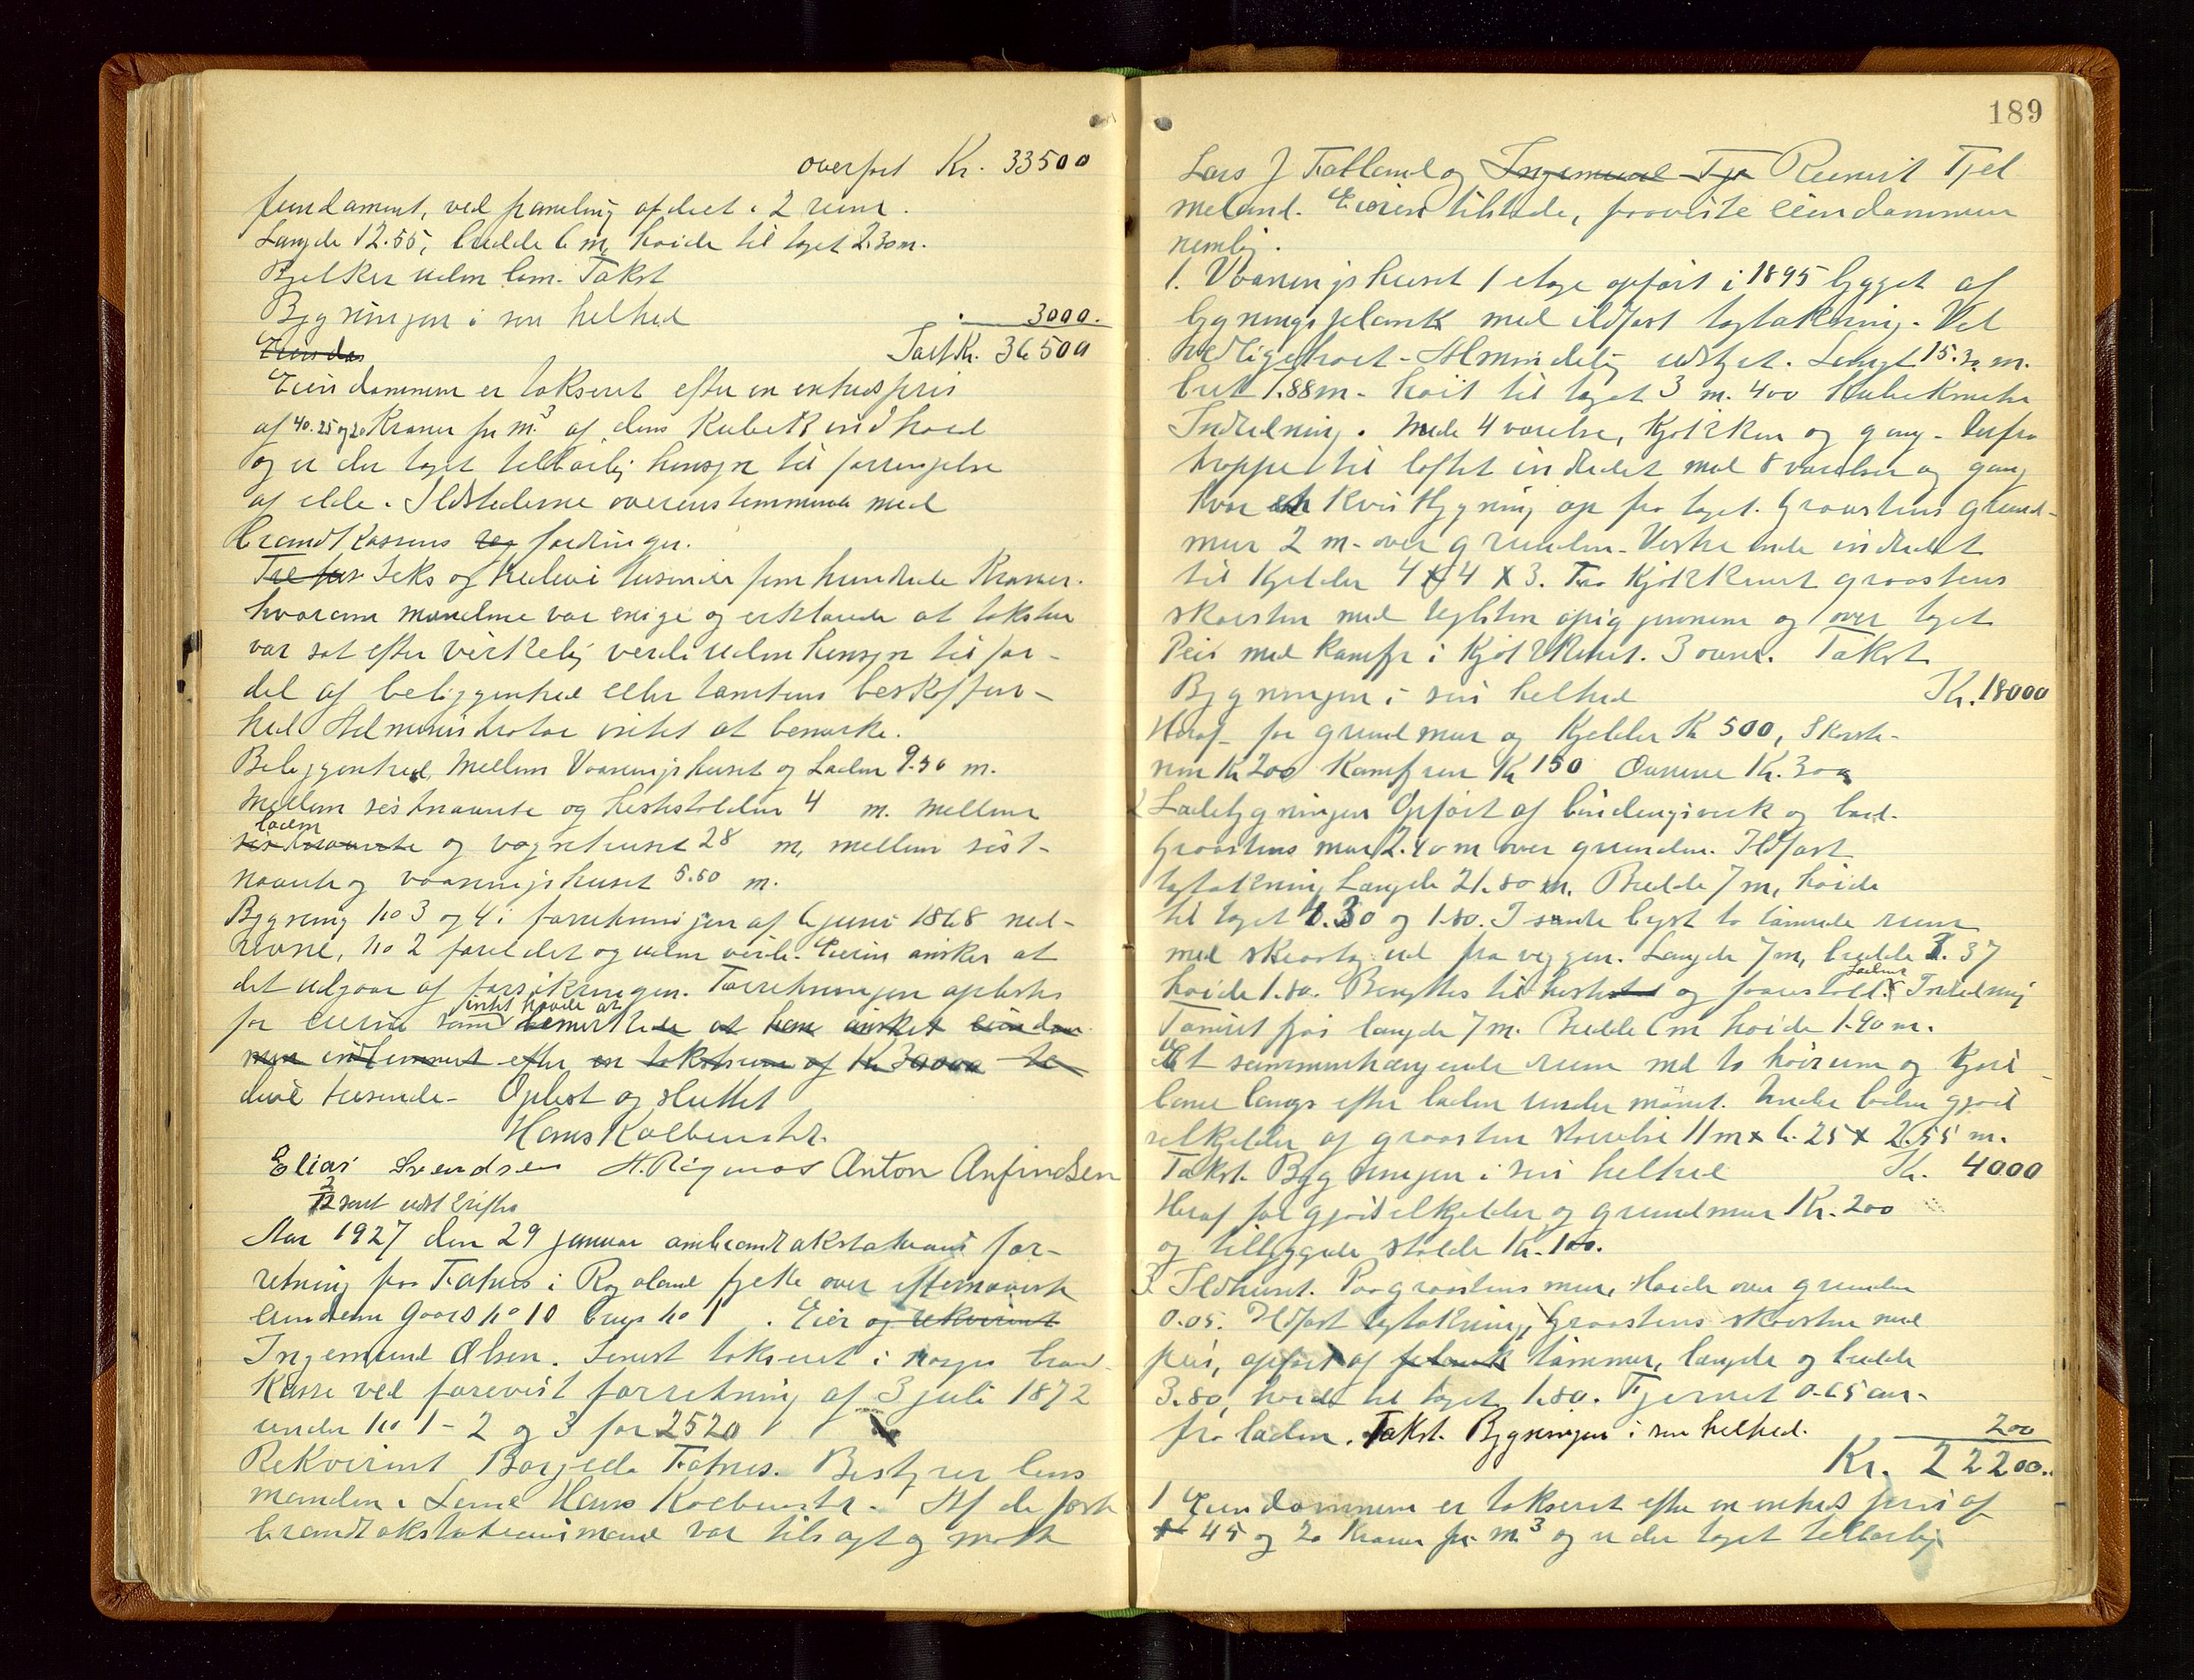 overført Kr. 33500
fundament, ved paneling afdelt i 2 rum.
Længde 12.55, bredde 6 m, høide til taget 2.30 m.
Bjelker uden lem. Takst
Bygningen i sin helhed 3000.
Eiendom Taxt Kr. 36500
Eiendommen er takseret efter en enhedspris
af 40.25 og 20 Kroner pr m.³ af dens Kubikindhold
og er der taget tilbørlig hensyn til forringelse
af elde. Ildstederne overensstemmende med
brandtkassens reg fordringer.
Tre ti Seks og tredive tusende fem hundrede Kroner.
hvorom mændene var enige og erklærede at taksten
var sat efter virkelig verdi uden hensyn til for-
del af beliggenhed eller tomtens beskaffen-
hed. Administrator intet at bemærke.
Beliggenhed, Mellem Vaaningshuset og Laden 9.50 m.
Mellem sistnævnte og hestestalden 4 m. mellem
laden
sistnævnte og vognhuset 28 m, mellem sist-
nævnte og vaaningshuset 5.50 m.
Bygning No 3 og 4 i forretningen af 6 juni 1868 ned-
revne, No 2 foreldet og uden verdi. Eieren ønsker at
det udgaar af forsikringen. Forretningen oplæstes
intet havde at
for eieren som bemerkede at han ønsket eiendom
men indlemmet efter en takstsum af Kr 30000 tre
dive tusende- Oplæst og sluttet
Hans Kolbenstv.
Elias Svendsen H. Rignæs Anton Anfindsen
2/12 sent udskrifter
Aar 1927 den 29 januar avbrandtakstations for-
retning paa Fatnes i Rogaland fylke over eftenævnte
eiendom Gaards No 10 brugs No 1. Eier og rekvirent
Ingemund Olsen. Senest takseret i Norges brand-
kasse ved forevist forretning af 3 juli 1872
under No 1 - 2 og 3 for 2520
Rekvirent Borgela Fatnes. Bestyrer lens
manden i Hans Kolbenstv. Af de faste
brandtakstationsmænd var tilsagt og møtte
189
Lars J Fatland og Ingemund Tje Reinert Tjel
meland. Eieren tilstede, paaviste eiendommen
nemlig.
1. Vaaningshuset 1 etage opført i 1895 bygget af
bygningsplank med ildfast tagtækning. Vel
vedligeholt - Almindelig udstyret. Længt 15.30 m.
bret 7.88 m. høit til taget 3 m. 400 Kubikmeter
Indredning. Nede 4 værelser, Kjøkken og gang. Derfra
trappe til loftet indredet med 8 værelser og gang
hvor en Kvistbygning op fra taget. Graastens grund-
mur 2 m. over grunden. Vestre ende indredet
til Kjelder 4 x 4 x 3. Fra Kjøkkenet graastens
skorsten med teglsten opigjennem og over taget
Peis med Komfyr i Kjøkkenet. 3 ovne. Takst
Bygningen i sin helhed Kr. 18000
Heraf for grundmur og Kjelder Kr 500, Skorste-
nen Kr 200 Komfyren Kr 150 Ovnene Kr. 300
2 Ladebygningen Opført af bindingsverk og bord.
Graastens mur 2.40 m over grunden. Ildfast
tagtækning Længde 21.80 m. Bredde 7 m, høide
til taget 4.30 og 1.80. I søndre bygt to tømrede rum
med skraatag ud fra veggen. Længde 7 m, bredde 3.37
høide 1.80. Benyttes til hestestal og faarestald. Ladens Indredning
Tømret fjøs længde 7 m. Bredde 6 m høide 1.90 m.
Et sammenhængende rum med to høirum og kjøre
lane langs efter laden under mønet. Under laden gjød
selkjelder af graasten størrelse 11 m x 6.25 x 2.55 m.
Takst. Bygningen i sin helhed Kr. 4000
Heraf for gjødselkjelder og grundmur Kr. 200
og tilbyggede stalde Kr. 100.
3. Ildhuset. Paa graastens mur, Høide over grunden
0.05. Ildfast tagtækning, Graastens skorsten med
peis, opført af plank tømmer, længde og bredde
3.80, høide til taget 1.80. Fjernet 0.65 cm.
fra laden. Takst. Bygningen i sin helhed. 200
Kr. 22200..
1 Eiendommen er takseret efter en enheds pris af
45 og 20 Kroner pr m³ og er der taget tilbørlig